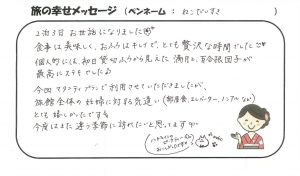 旅の幸せメッセージ（ペンネーム： ねこだいすき ）
2泊3日 お世話になりました
食事は美味しく、おふろはキレイで、とても贅沢な時間でした
個人的には、初日貸切ふろから見えた満月と、百合根団子が
最高にステキでした
今回マタニティプランで利用させていただきましたが、
旅館全体の妊婦に対する気遣い（部屋着、エレベーター、ノンアルなど）
とても嬉しかったです
今度はまた違う季節に訪れたいと思ってます